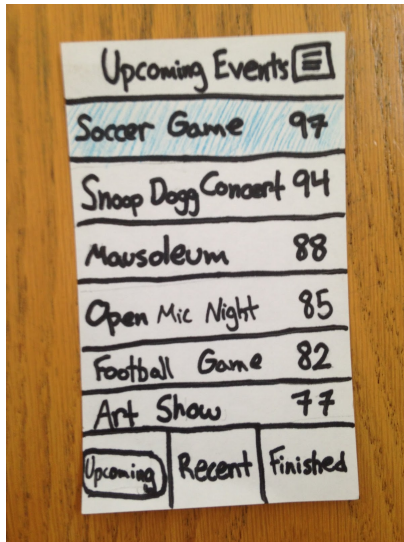 Upcoming Events
Soccer Game 97
Snoop Dogg Concert 94
Mausoleum 88
Open Mic Night 85
Football Game 82
Art Show 77
Upcoming Recent Finished